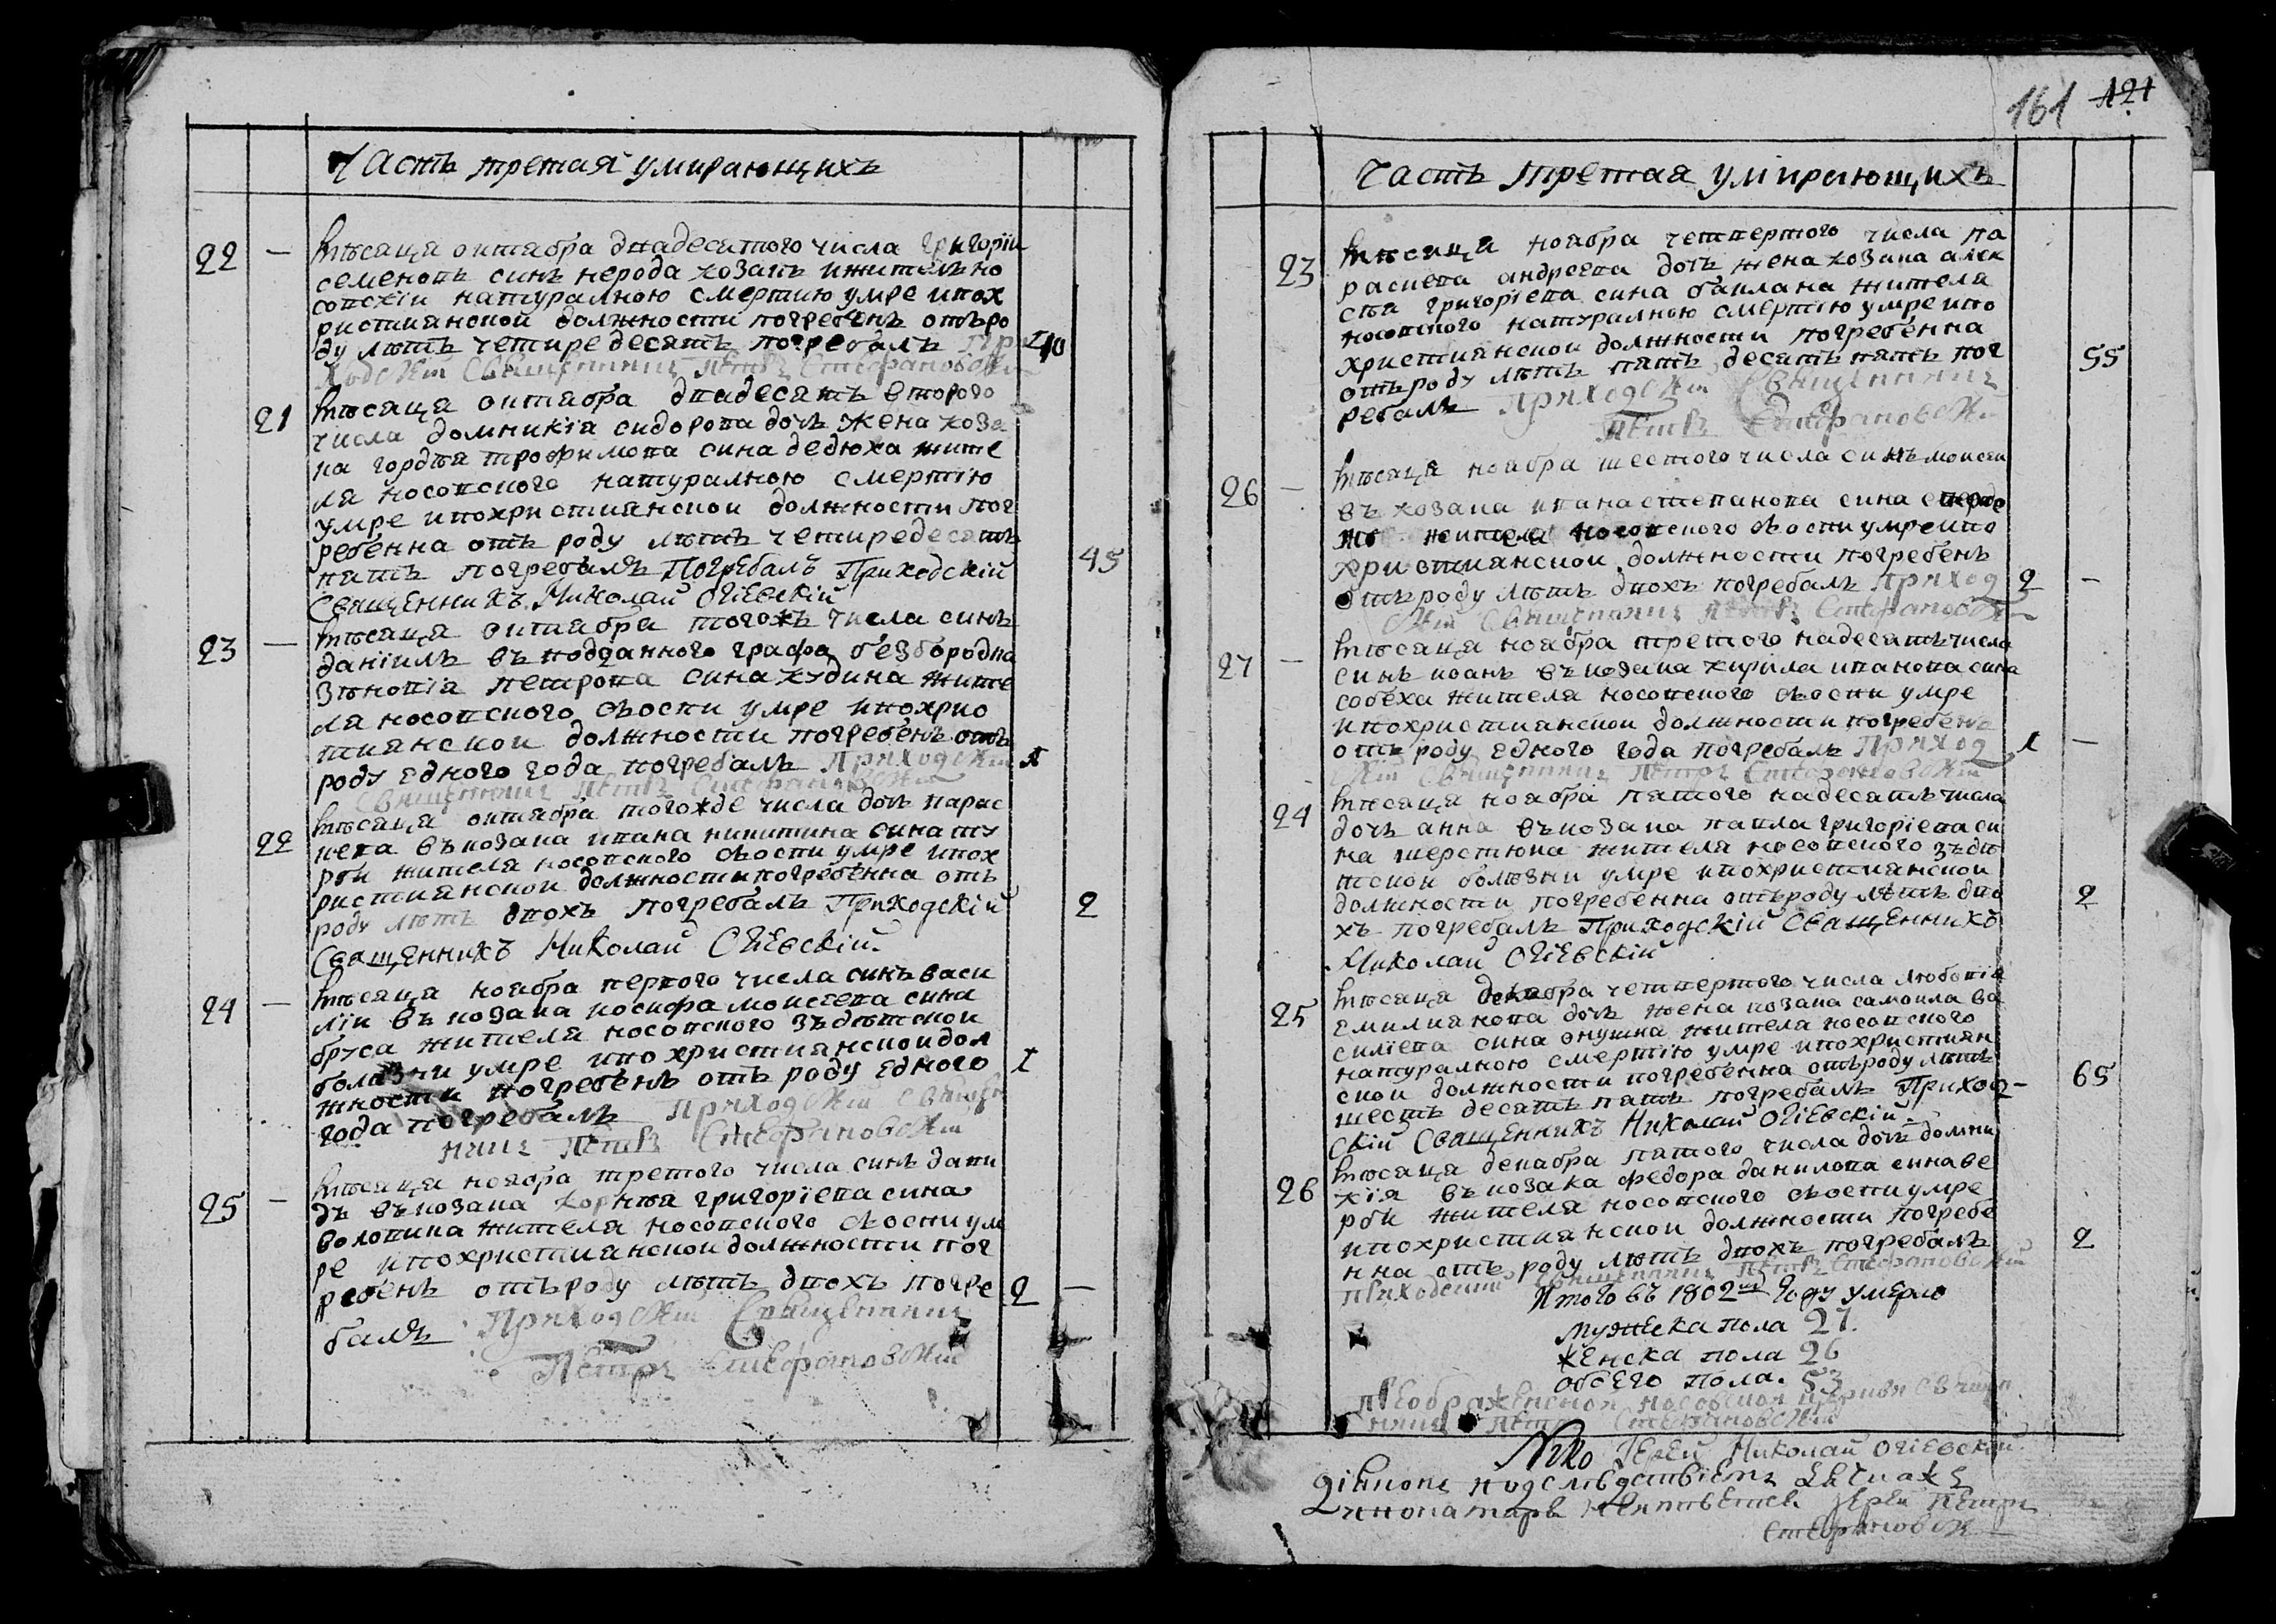 Часть третая умирающихъ
22 — мѣсяца октабра двадесятого числа григоріи
семеновъ синъ нерода козакъ ижителъ но
совскіи натуралною смертию умре ипох
ристиянскои должности погребенъ отъро
ду лѣтъ четиредесятъ погребалъ При 40
ходскій Священникъ Петръ Стефановскій
21 мѣсяца октабра двадесятъ второго
числа домникія сидорова дочъ жена коза
ка гордѣя трофимова сина дедюха жите
ля носовского натуралною смертію
умре ипохристиянскои должности пог
ребенна отъ роду лѣтъ четиредесятъ
пятъ погребалъ Погребалъ Приходскій 45
Священникъ Николай Огіевскій
23 — мѣсяца октабра тогожъ числа синъ
даніилъ въ подданного графа безбородка
зѣновія петрова сина кудина жите
ля носовского ѿоспи умре ипохрис
тиянскои должности погребенъ отъ
роду едного года погребалъ Приходскій 1
Священникъ Петръ Стефановскій
22 мѣсяца октабра тогожде числа дочъ парас
кева въ козака ивана никитина сина
жителя носовского оспи умре ипох
ристиянскои должности погребенна отъ
роду лѣтъ двохъ погребалъ Приходскій 2
Священникъ Николай Огіевскій
24 — мѣсяца ноабра первого числа синъ васи
ліи въ козака иосифа моисеева сина
бруса жителя носовского зъдѣтскои
болѣзни умре ипохристиянскои дол
жности погребенъ отъ роду едного 1
года погребалъ Приходскій Священ
никъ Петръ Стефановскій
25 — мѣсяца ноабра третого числа синъ дави
дъ въ козака корнѣя григоріева сина
волопина жителя носовского оспи ум
ре ипохристиянскои должности пог
ребенъ отъроду лѣтъ двохъ погре 2 —
балъ Приходскій Священникъ
Петръ Стефановскій
161 121
Часть третая умирающихъ
23 мѣсяца ноабра четвертого числа па
раскева андреева дочъ жена козака алек
сѣя григоріева сина баклана жителя
носовского натуралною смертію умре ипо
християнскои должности погребенна
отъроду лѣтъ пятъ десятъ пятъ пог 55
ребалъ Приходскій Священникъ
Петръ Стефановскій
26 — мѣсяца ноабра шестого числа синъ моисеи
въ козака ивана степанова сина
жителя носовского оспи умре ипо
християнскои должности погребенъ
отъроду лѣтъ двохъ погребалъ Приход 2 —
скій Священникъ Петръ Стефановскій
27 — мѣсяца ноабра третого надесятъ числа
синъ иоанъ въ козака кирила иванова сина
собеха жителя носовского оспи умре
ипохристиянскои должности погребенъ
отъ роду едного года погребалъ Приход 1 —
скій Священникъ Петръ Стефановскій
24 мѣсяца ноабра пятого надесятъ числа
дочъ анна въ козака павла григоріева си
на шерстюка жителя носовского зъдѣ
тскои болѣзни умре ипохристиянскои
должности погребенна отъроду лѣтъ дво 2
хъ погребалъ Приходскій Священникъ
Николай Огіевскій
25 мѣсяца декабра четвертого числа любовія
емилианова дочъ жена козака самоила ва
силіева сина онушка жителя носовского
натуралною смертію умре ипохристиян
скои должности погребенна отъроду лѣтъ 65
шестъ десятъ пятъ погребалъ Приход-
скій Священникъ Николай Огіевскій
26 мѣсяца декабра пятого числа дочъ домни
кія въ козака федора данилова сина ве
рби жителя носовского оспи умре
ипохристиянскои должности погребе
нна отъ роду лѣтъ двохъ погребалъ 2
Приходскій Священникъ Петръ Стефановскій
Итого въ 1802мъ Году умерло
Мужеска пола 27.
женска пола 26
обоего пола. 53
Преображенской носовской церкви священ
никъ Петръ Стефановскій
Іерей Николай Огіевскій
Іерей Петръ
Стефановскій